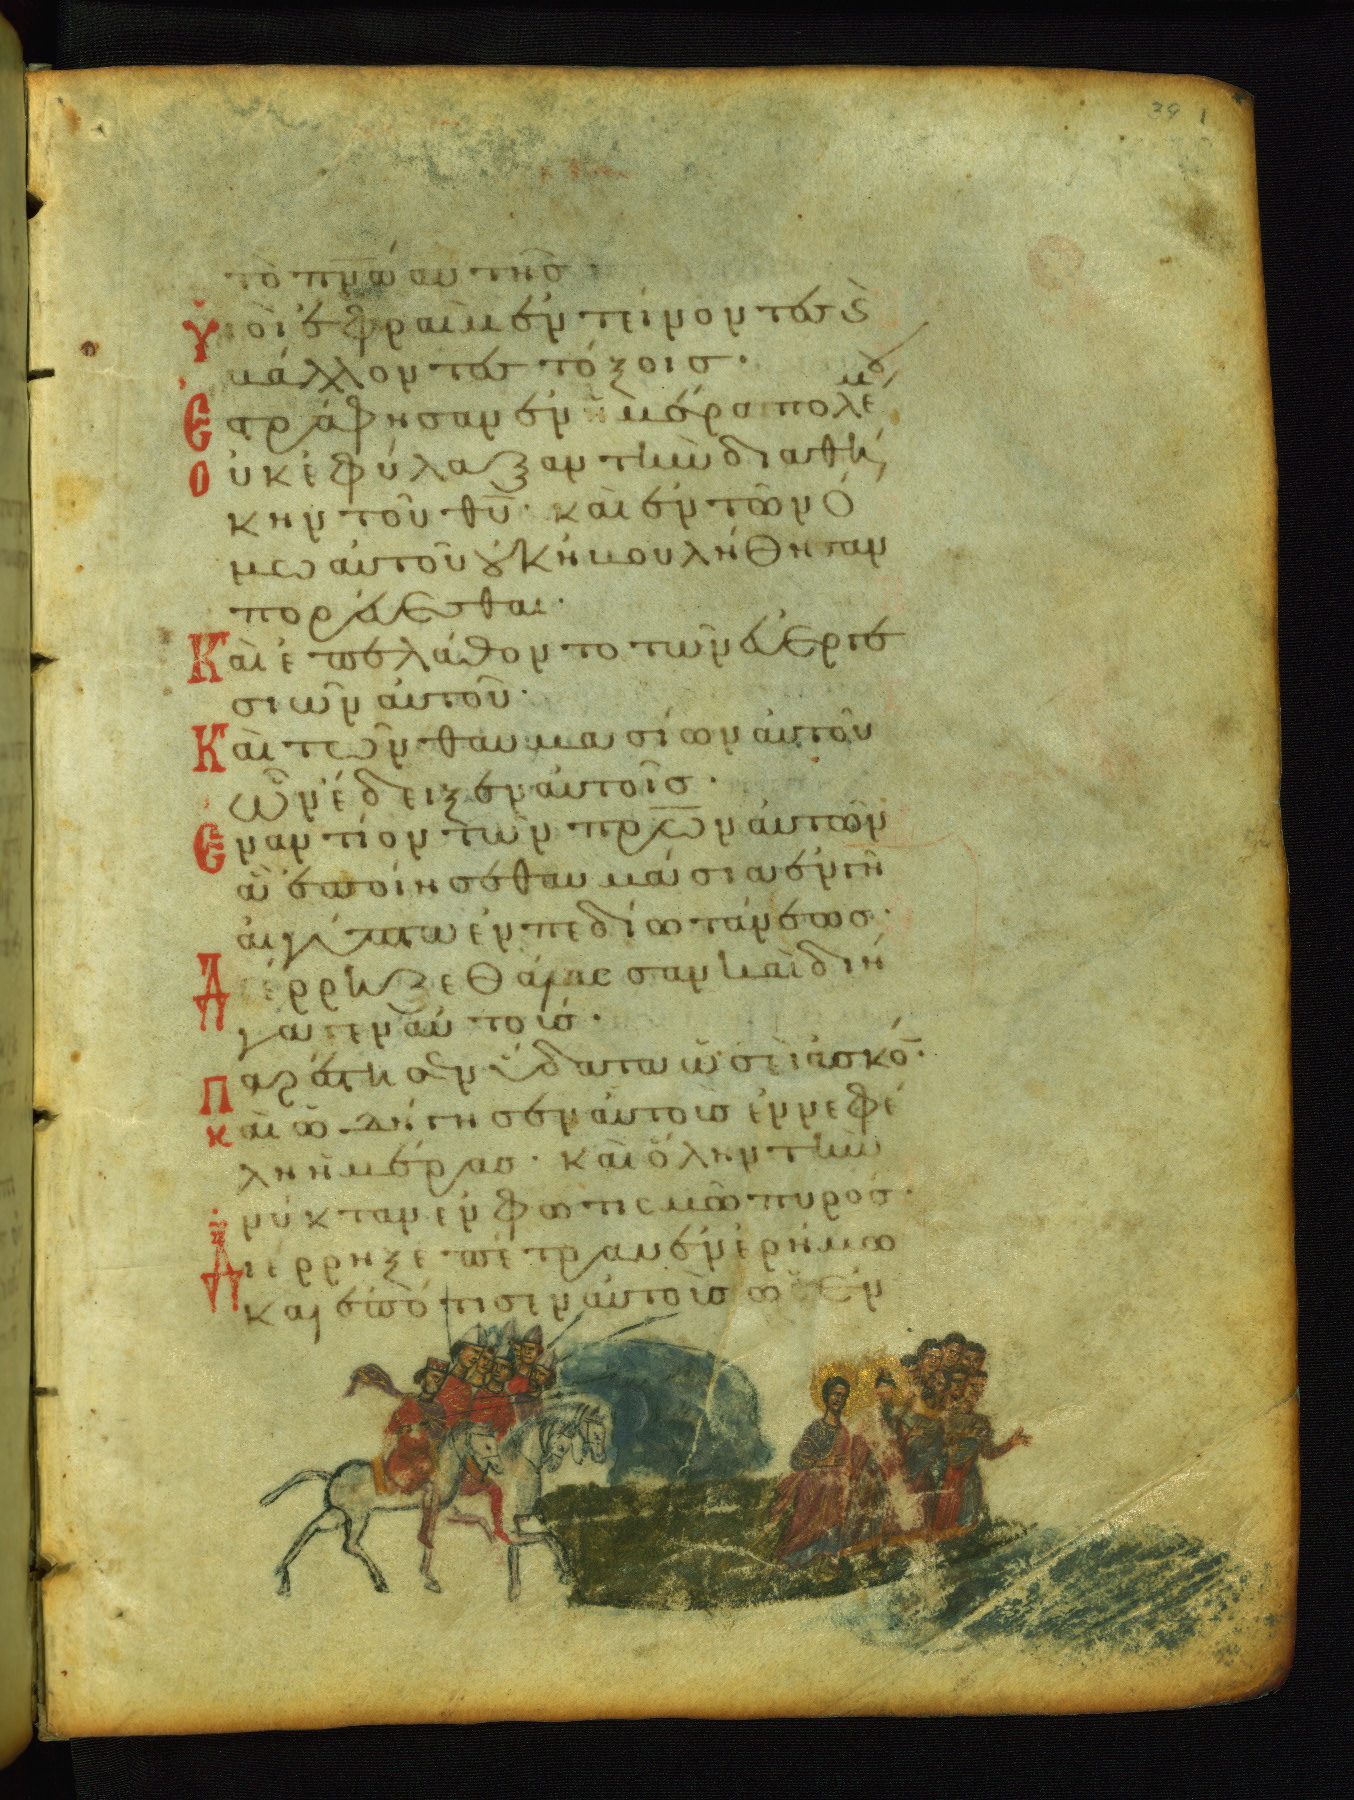 39 1
τὸ πν̅α αυτῆσ·
Υἱοὶ ἐφραὶμ ἐντείνοντεσ ὲ
βάλλοντεσ τόξοισ·
Ἐστράφησαν ἐν ἡμέρα πολέ
μου
Οὐκ ἐφύλαξαν τὴν διαθή
κην τοῦ θυ̅· καὶ ἐν τῶ νό
μω αὐτοῦ οὐκ ἠβουλήθησαν
πορεύεσθαι·
Καὶ ἐπελάθοντο τῶν εὐεργε
σιῶν αὐτοῦ·
Καὶ τῶν θαυμασίων αὐτοῦ
ὧν ἔδειξεν αὐτοῖσ·
Εναντίον τῶν πρω̅ν αὐτῶν
ἃ ἐποίησε θαυμάσια ἐν γῆ
αἰγύπτω ἐν πεδίω τάνεωσ·
Διέρρηξε θάλασσαν καὶ διή
γαγεν αὐτούσ·
Παρέστησεν ὕδατα ὡσεὶ ἀσκό̅·
Καὶ ὡδήγησεν αὐτοὺσ ἐν νεφέ
λη ἡμέρασ· καὶ ὅλην τὴν
νύκτα ἐν φωτισμῶ πυρόσ·
Διέρρηξε πέτραν ἐν ἐρήμω
καὶ ἐπότισεν αὐτοὺσ ὡσ ἐν